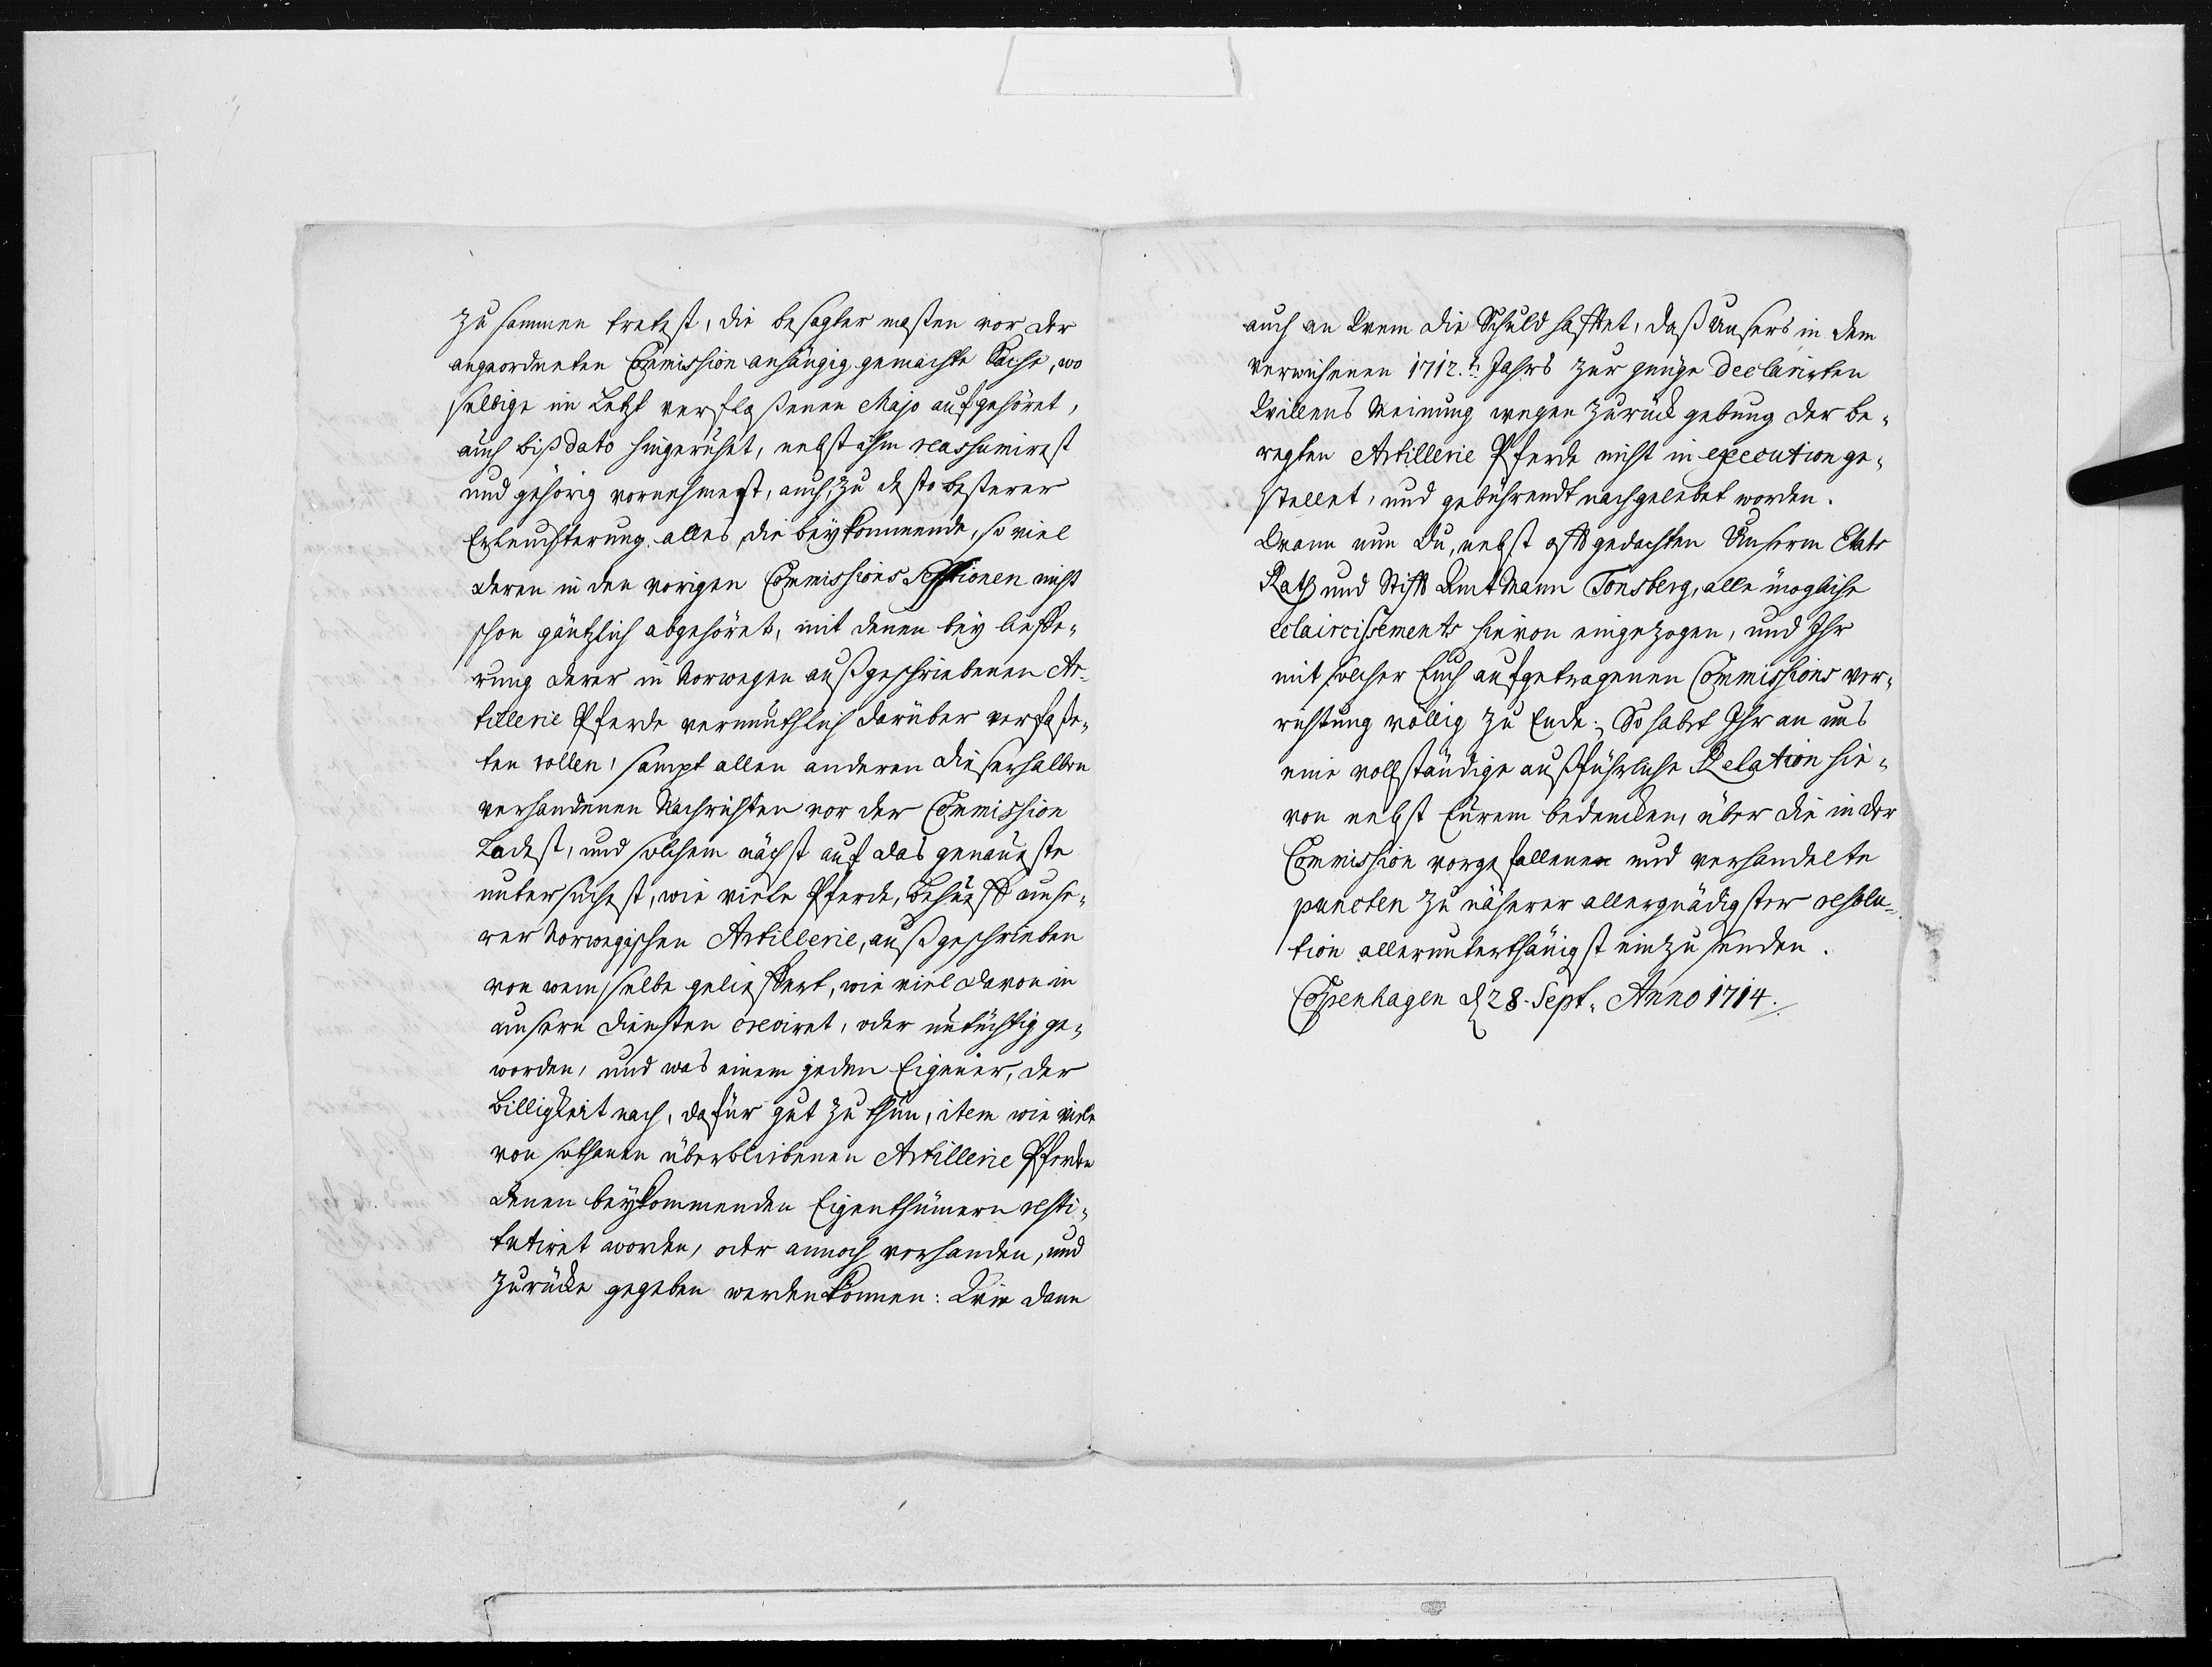 zusammen tretest, die besagter maßen vor der
angeordneten Commission anhängig gemachte Sache, wo
selbige im Letzt verfloßenen Majo aufgehöret,
auch biß dato hingeruhet, nebst ihm reassumirest
und gehörig vornehmest, auch, zu desto besterer
Erleuchterung alles, die beykommende, so viel
deren in den vorigen Commissions Sessionen nicht
schon gäntzlich abgehöret, mit denen bey lieffe¬
rung derer in Norwegen außgeschriebenen Ar¬
tillerie Pferde vermuthlich darüber verfaße¬
ten rollen, sampt allen anderen dieserhalben
verhandenen Nachrichten vor der Commission
Ladest, und solchem nächst auf das genaueste
untersuchest, wie viele Pferde, behuefft unse¬
rer Norwegischen Artillerie, außgeschrieben
von wem selbe gelieffert, wie viel davon in
unsern Diensten creviret, oder untüchtig ge¬
worden, und was einem jeden Eigener, der
Billigkeit nach, dafür gut zu thun, item wie viele
von sothanen überbliebenen Artillerie Pferde
denen beykommenden Eigenthümern resti¬
tutiret worden, oder annoch verhanden, und
zurücke gegeben werden können: Wie dann
auch an Wem die Schuld hafftet, daß Unsers in dem
verwichenen 1712.t. Jahrs zur gnüge declarirten
Willens Meinung wegen zurückgebung der be¬
regten Artillerie Pferde nicht in execution ge¬
stellet, und gebührendt nachgelebet worden.
Wann nun Du, nebst offtgedachten Unserm Etats
Rath und Stifft Amtmann Tonsberg, alle mögliche
eclaircissements hievon eingezogen, und Ihr
mit solcher Euch aufgetragenen Commissions ver¬
richtung völlig zu Ende; So habet Ihr an uns
eine vollständige außführliche Relation hie¬
von nebst Eurem bedencken, über die in der
Commission vorgefallenen und verhandelte
puncten zu näherer allergnädigster resolu¬
tion allerunterthänigst einzusenden.
Copenhagen d 28. Sept. Anno 1714.